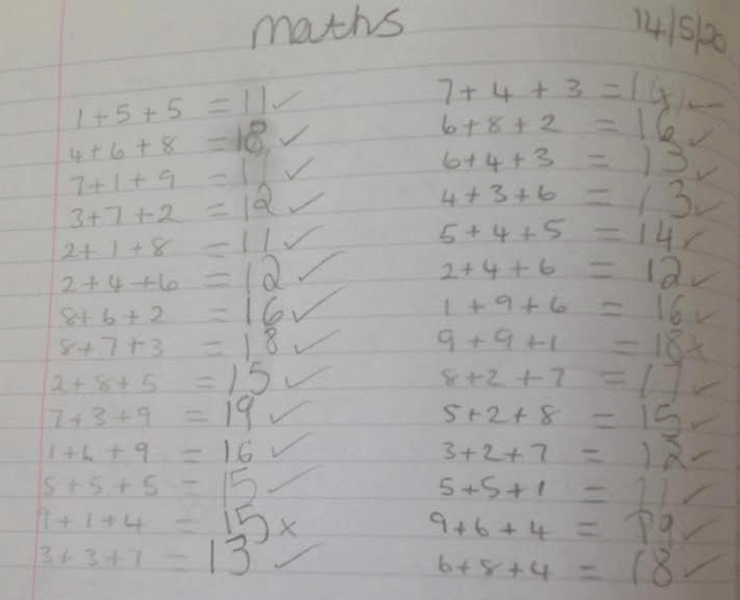 maths 14/5/20
1+5+5 = 11 ✓
4+6+8 = 18 ✓
7+1+9 = 17 ✓
3+7+2 = 12 ✓
2+1+8 = 11 ✓
2+4+6 = 12 ✓
8+6+2 = 16 ✓
8+7+3 = 18 ✓
2+8+5 = 15 ✓
7+3+9 = 19 ✓
1+6+9 = 16 ✓
5+5+5 = 15 ✓
9+1+4 = 15 x
3+3+7 = 13 ✓
7+4+3 = 14 ✓
6+8+2 = 16 ✓
6+4+3 = 13 ✓
4+3+6 = 13 ✓
5+4+5 = 14 ✓
2+4+6 = 12 ✓
1+9+6 = 16 ✓
9+9+1 = 18 x
8+2+7 = 17 ✓
5+2+8 = 15 ✓
3+2+7 = 12 ✓
5+5+1 = 11 ✓
9+6+4 = 19 ✓
6+8+4 = 18 ✓